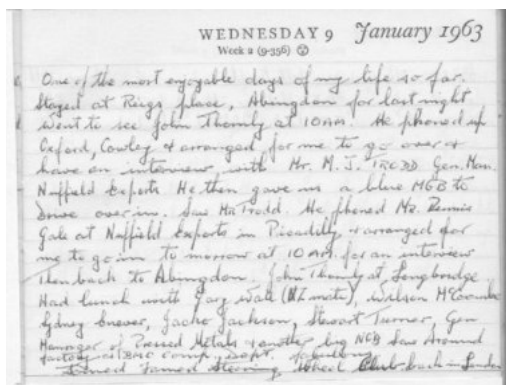 WEDNESDAY 9 January 1963
Week 2 (9-356)
One of the most enjoyable days of my life so far.
Stayed at Regs place, Abingdon for last night
Went to see John Thornly at 10 AM. He phoned up
Oxford, Cowley & arranged for me to go over &
have an interview with Mr. M. J. TRODD Gen. Man.
Nuffield Exports He then gave us a blue MGB to
drive over in. Saw Mr. Trodd. He phoned Mr. Dennis
Gale at Nuffield Exports in Picadilly, & arranged for
me to go in to morrow at 10 AM. for an interview
Then back to Abingdon. John Thornly at Longbridge
Had lunch with Gary Wall (NZ mate), Wilson McComb
Sydney Enever, Jacko Jackson, Stewart Turner, Gen
Manager of Pressed Metals & another big Saw Around
factory & BMC comp. Dept. fabulous
famed Steering Wheel Club back in London